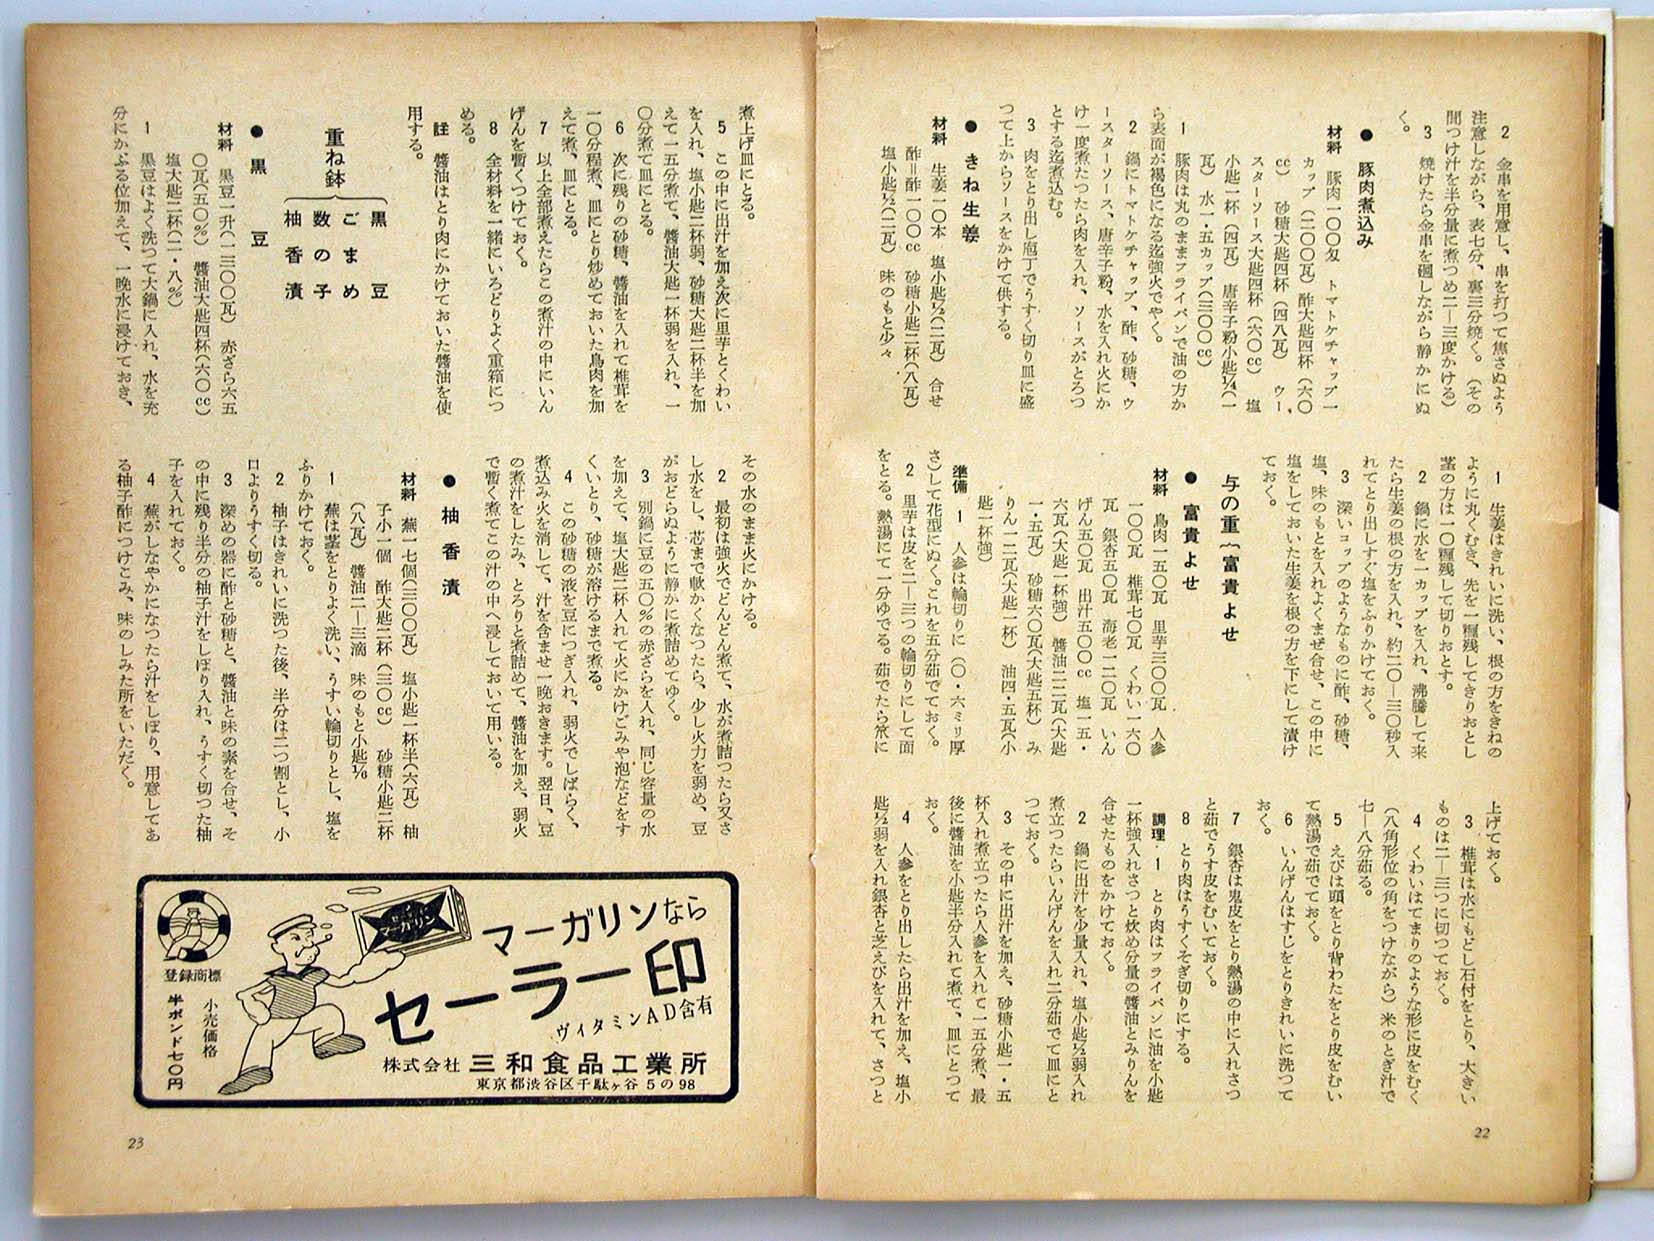 2　金串を用意し、串を打つて焦さぬよう
注意しながら、表七分、裏三分焼く。（その
間つけ汁を半分量に煮つめ二―三度かける）
3　焼けたら金串を廻しながら静かにぬ
く。
● 豚肉煮込み
材料　豚肉一〇〇匁　トマトケチャップ一
カップ（二〇〇瓦）酢大匙四杯（六〇
cc）　砂糖大匙四杯（四八瓦）　ウー
スターソース大匙四杯（六〇cc）　塩
小匙一杯（四瓦）　唐辛子粉小匙¼（一
瓦）　水一・五カップ（三〇〇cc）
1　豚肉は丸のままフライパンで油の方か
ら表面が褐色になる迄強火でやく。
2　鍋にトマトケチャップ、酢、砂糖、ウ
ースターソース、唐辛子粉、水を入れ火にか
け一度煮たつたら肉を入れ、ソースがとろつ
とする迄煮込む。
3　肉をとり出し庖丁でうすく切り皿に盛
つて上からソースをかけて供する。
● きね生姜
材料　生姜一〇本　塩小匙½（二瓦）　合せ
酢＝酢一〇〇cc　砂糖小匙二杯（八瓦）
塩小匙½（二瓦）　味のもと少々
1　生姜はきれいに洗い、根の方をきねの
ように丸くむき、先を一糎残してきりおとし
茎の方は一〇糎残して切りおとす。
2　鍋に水を一カップを入れ、沸騰して来
たら生姜の根の方を入れ、約二〇―三〇秒入
れてとり出しすぐ塩をふりかけておく。
3　深いコップのようなものに酢、砂糖、
塩、味のもとを入れよくまぜ合せ、この中に
塩をしておいた生姜を根の方を下にして漬け
ておく。
与の重｛富貴よせ
● 富貴よせ
材料　鳥肉一五〇瓦　里芋三〇〇瓦　人参
一〇〇瓦　椎茸七〇瓦　くわい一六〇
瓦　銀杏五〇瓦　海老一二〇瓦　いん
げん五〇瓦　出汁五〇〇cc　塩一五・
六瓦（大匙一杯強）　醬油二二瓦（大匙
一・五瓦）　砂糖六〇瓦（大匙五杯）　み
りん一二瓦（大匙一杯）　油四・五瓦（小
匙一杯強）
準備　1　人参は輪切りに（〇・六ミリ厚
さ）して花型にぬく。これを五分茹でておく。
2　里芋は皮を二―三つの輪切りにして面
をとる。熱湯にて一分ゆでる。茹でたら笊に
上げておく。
3　椎茸は水にもどし石付をとり、大きい
ものは二―三つに切つておく。
4　くわいはてまりのような形に皮をむく
（八角形位の角をつけながら）米のとぎ汁で
七―八分茹る。
5　えびは頭をとり背わたをとり皮をむい
て熱湯で茹でておく。
6　いんげんはすじをとりきれいに洗つて
おく。
7　銀杏は鬼皮をとり熱湯の中に入れさつ
と茹でうす皮をむいておく。
8　とり肉はうすくそぎ切りにする。
調理　1　とり肉はフライパンに油を小匙
一杯強入れさつと炒め分量の醬油とみりんを
合せたものをかけておく。
2　鍋に出汁を少量入れ、塩小匙½弱入れ
煮立つたらいんげんを入れ二分茹でて皿にと
つておく。
3　その中に出汁を加え、砂糖小匙一・五
杯入れ煮立つたら人参を入れて一五分煮、最
後に醬油を小匙半分入れて煮て、皿にとつて
おく。
4　人参をとり出したら出汁を加え、塩小
匙½弱を入れ銀杏と芝えびを入れて、さつと
22
煮上げ皿にとる。
5　この中に出汁を加え次に里芋とくわい
を入れ、塩小匙二杯弱、砂糖大匙二杯半を加
えて一五分煮て、醬油大匙一杯弱を入れ、一
〇分煮て皿にとる。
6　次に残りの砂糖、醬油を入れて椎茸を
一〇分程煮、皿にとり炒めておいた鳥肉を加
えて煮、皿にとる。
7　以上全部煮えたらこの煮汁の中にいん
げんを暫くつけておく。
8　全材料を一緒にいろどりよく重箱につ
める。
註　醬油はとり肉にかけておいた醬油を使
用する。
重ね鉢｛
黒豆
ごまめ
数の子
柚香漬
● 黒豆
材料　黒豆一升（一三〇〇瓦）　赤ざら六五
〇瓦（五〇％）　醬油大匙四杯（六〇cc）
塩大匙二杯（二・八％）
1　黒豆はよく洗つて大鍋に入れ、水を充
分にかぶる位加えて、一晩水に浸けておき、
その水のまま火にかける。
2　最初は強火でどんどん煮て、水が煮詰つたら又さ
し水をし、芯まで軟かくなつたら、少し火力を弱め、豆
がおどらぬように静かに煮詰めてゆく。
3　別鍋に豆の五〇％の赤ざらを入れ、同じ容量の水
を加えて、塩大匙二杯入れて火にかけごみや泡などをす
くいとり、砂糖が溶けるまで煮る。
4　この砂糖の液を豆につぎ入れ、弱火でしばらく、
煮込み火を消して、汁を含ませ一晩おきます。翌日、豆
の煮汁をしたみ、とろりと煮詰めて、醬油を加え、弱火
で暫く煮てこの汁の中へ浸しておいて用いる。
● 柚香漬
材料　蕪一七個（三〇〇瓦）　塩小匙一杯半（六瓦）　柚
子小一個　酢大匙二杯（三〇cc）　砂糖小匙二杯
（八瓦）　醬油二―三滴　味のもと小匙⅙
1　蕪は茎をとりよく洗い、うすい輪切りとし、塩を
ふりかけておく。
2　柚子はきれいに洗つた後、半分は二つ割とし、小
口よりうすく切る。
3　深めの器に酢と砂糖と、醬油と味の素を合せ、そ
の中に残り半分の柚子汁をしぼり入れ、うすく切つた柚
子を入れておく。
4　蕪がしなやかになつたら汁をしぼり、用意してあ
る柚子酢につけこみ、味のしみた所をいただく。
マーガリンなら
セーラー印
ヴィタミンAD含有
株式会社 三和食品工業所
東京都渋谷区千駄ヶ谷5の98
登録商標
小売価格
半ポンド七〇円
マーガリン
23